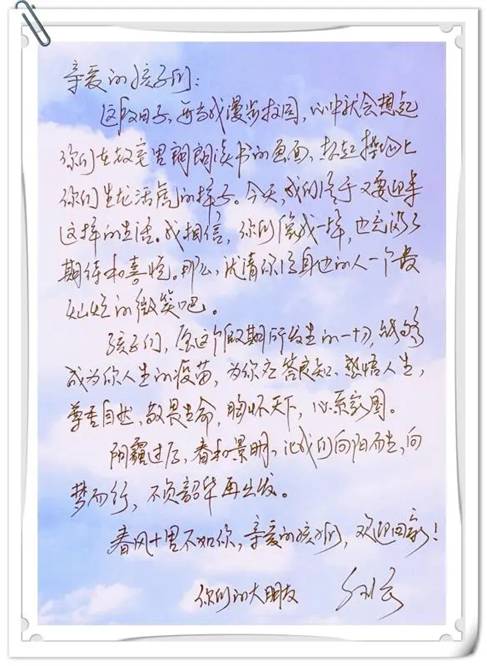 亲爱的孩子们：
这段日子，每当我漫步校园，心中就会想起
你们在教室里朗朗读书的画面，想起操场上
你们生龙活虎的样子。今天，我们终于又要迎来
这样的生活。我相信，你们像我一样，也充满了
期待和喜悦。那么，就请你给身边的人一个最
灿烂的微笑吧。
孩子们，愿这个假期所发生的一切，能够
成为你人生的疫苗，为你
感悟人生，
尊重自然，敬畏生命，胸怀天下，心系家国。
阴霾过后，春和景明，让我们向阳而生，向
梦而行，不负韶华再出发。
春风十里不如你，亲爱的孩子们，欢迎回家！
你们的大朋友